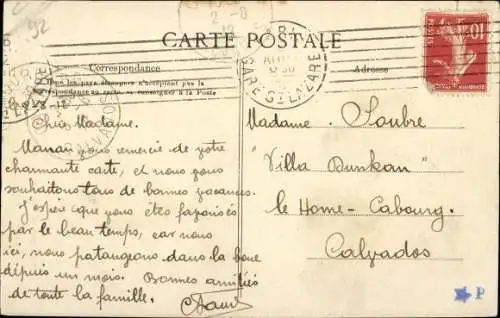 92
CARTE POSTALE
GARE St LAZARE
Correspondance
Tous les pays étrangers n'acceptent pas la
correspondance au recto. — se renseigner à la Poste
Adresse
10c
Chère Madame.
Maman vous remercie de votre
charmante carte, et nous vous
souhaitons tous de bonnes vacances.
J'espère que vous êtes favorisés
par le beau temps, car nous
ici, nous pataugeons dans la boue
depuis un mois. Bonnes amitiés
de toute la famille.
Madame Soubre
"Villa Dunkan"
le Home-Cabourg.
Calvados
P